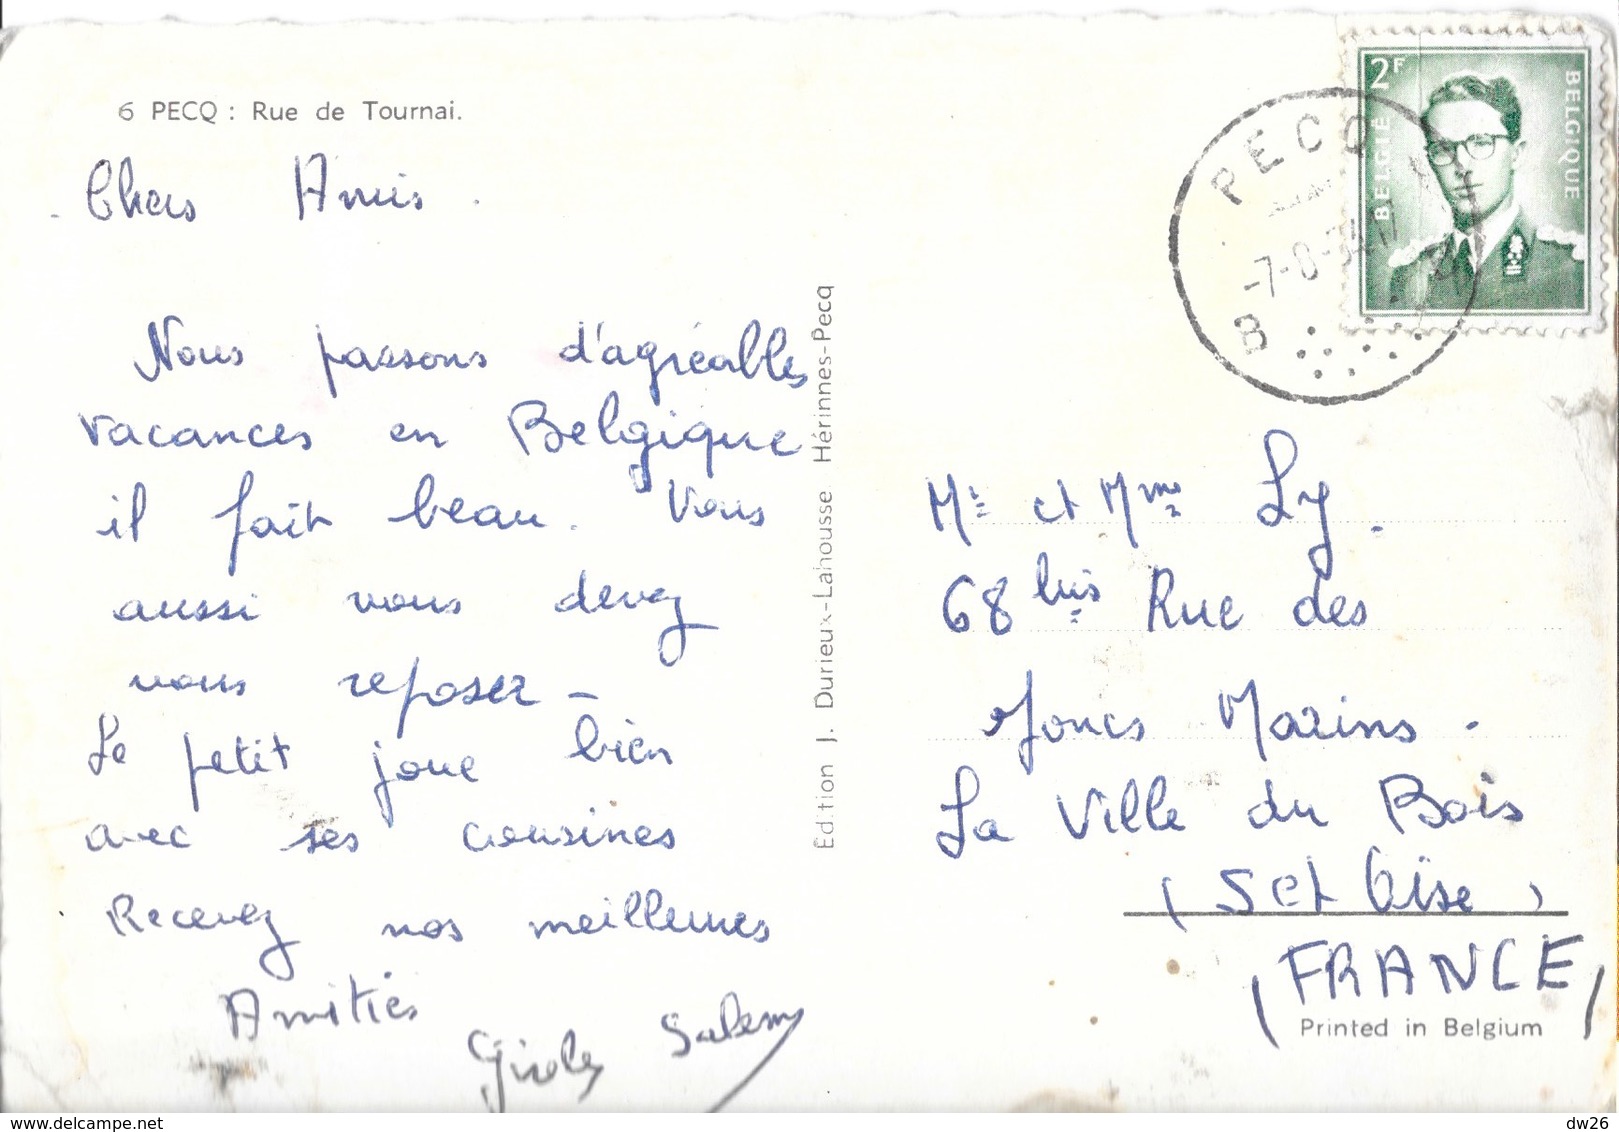 6 PECQ : Rue de Tournai.
Chers Amis.
Nous passons d'agréables
vacances en Belgique
il fait beau. Vous
aussi vous devez
vous reposer –
Le petit joue bien
avec ses cousines
Recevez nos meilleures
Amitiés
Salem
Edition J. Durieux-Lahousse Hérinnes-Pecq
2F
BELGIË
BELGIQUE
PECQ
B
Mr et Mme Ly.
68 bis Rue des
Joncs Marins.
La Ville du Bois
(S et Oise)
(FRANCE)
Printed in Belgium
www.delcampe.net
dw26